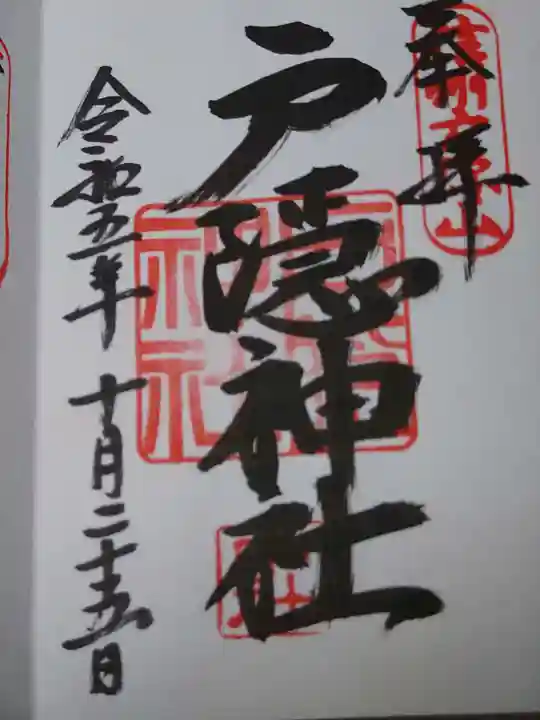 奉拝
戸隠神社
令和五年十月二十五日